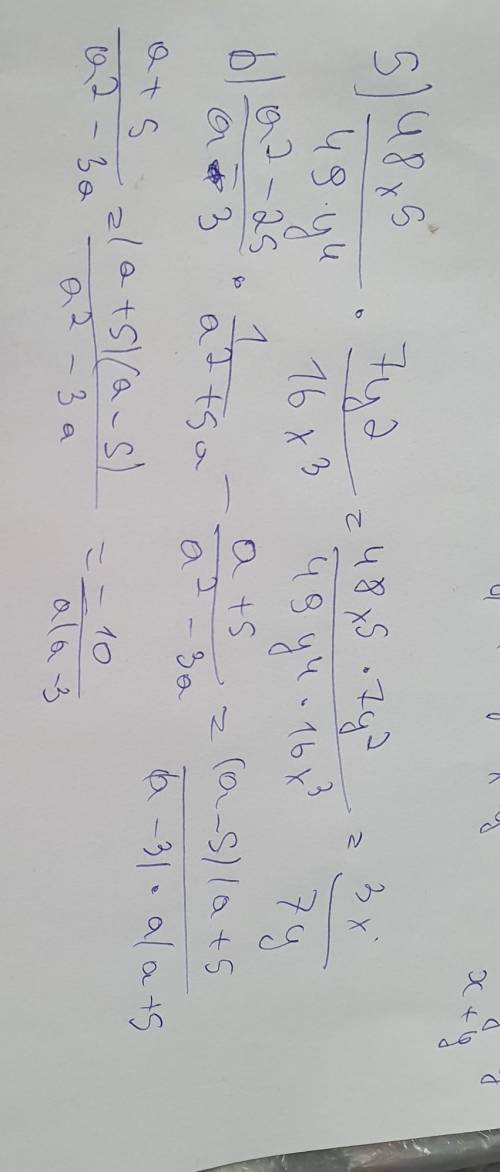 5) 48x⁵/49·y⁴ · 7y²/16x³ = 48x⁵·7y²/49y⁴·16x³ = 3x/7y
b) a²-25/a-3 · 1/a²+5a - a+5/a²-3a = (a-5)(a+5/(a-3)·a(a+5
a+5/a²-3a = (a+5)(a-5)/a²-3a = -10/a(a-3
x+y